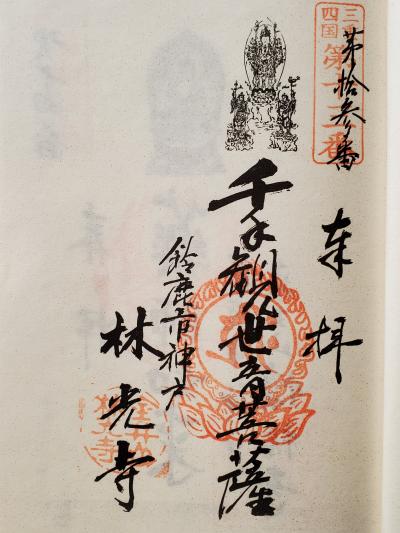 三重
四国
第十三番
第拾参番
奉拝
千手観世音菩薩
鈴鹿市神戸
林光寺